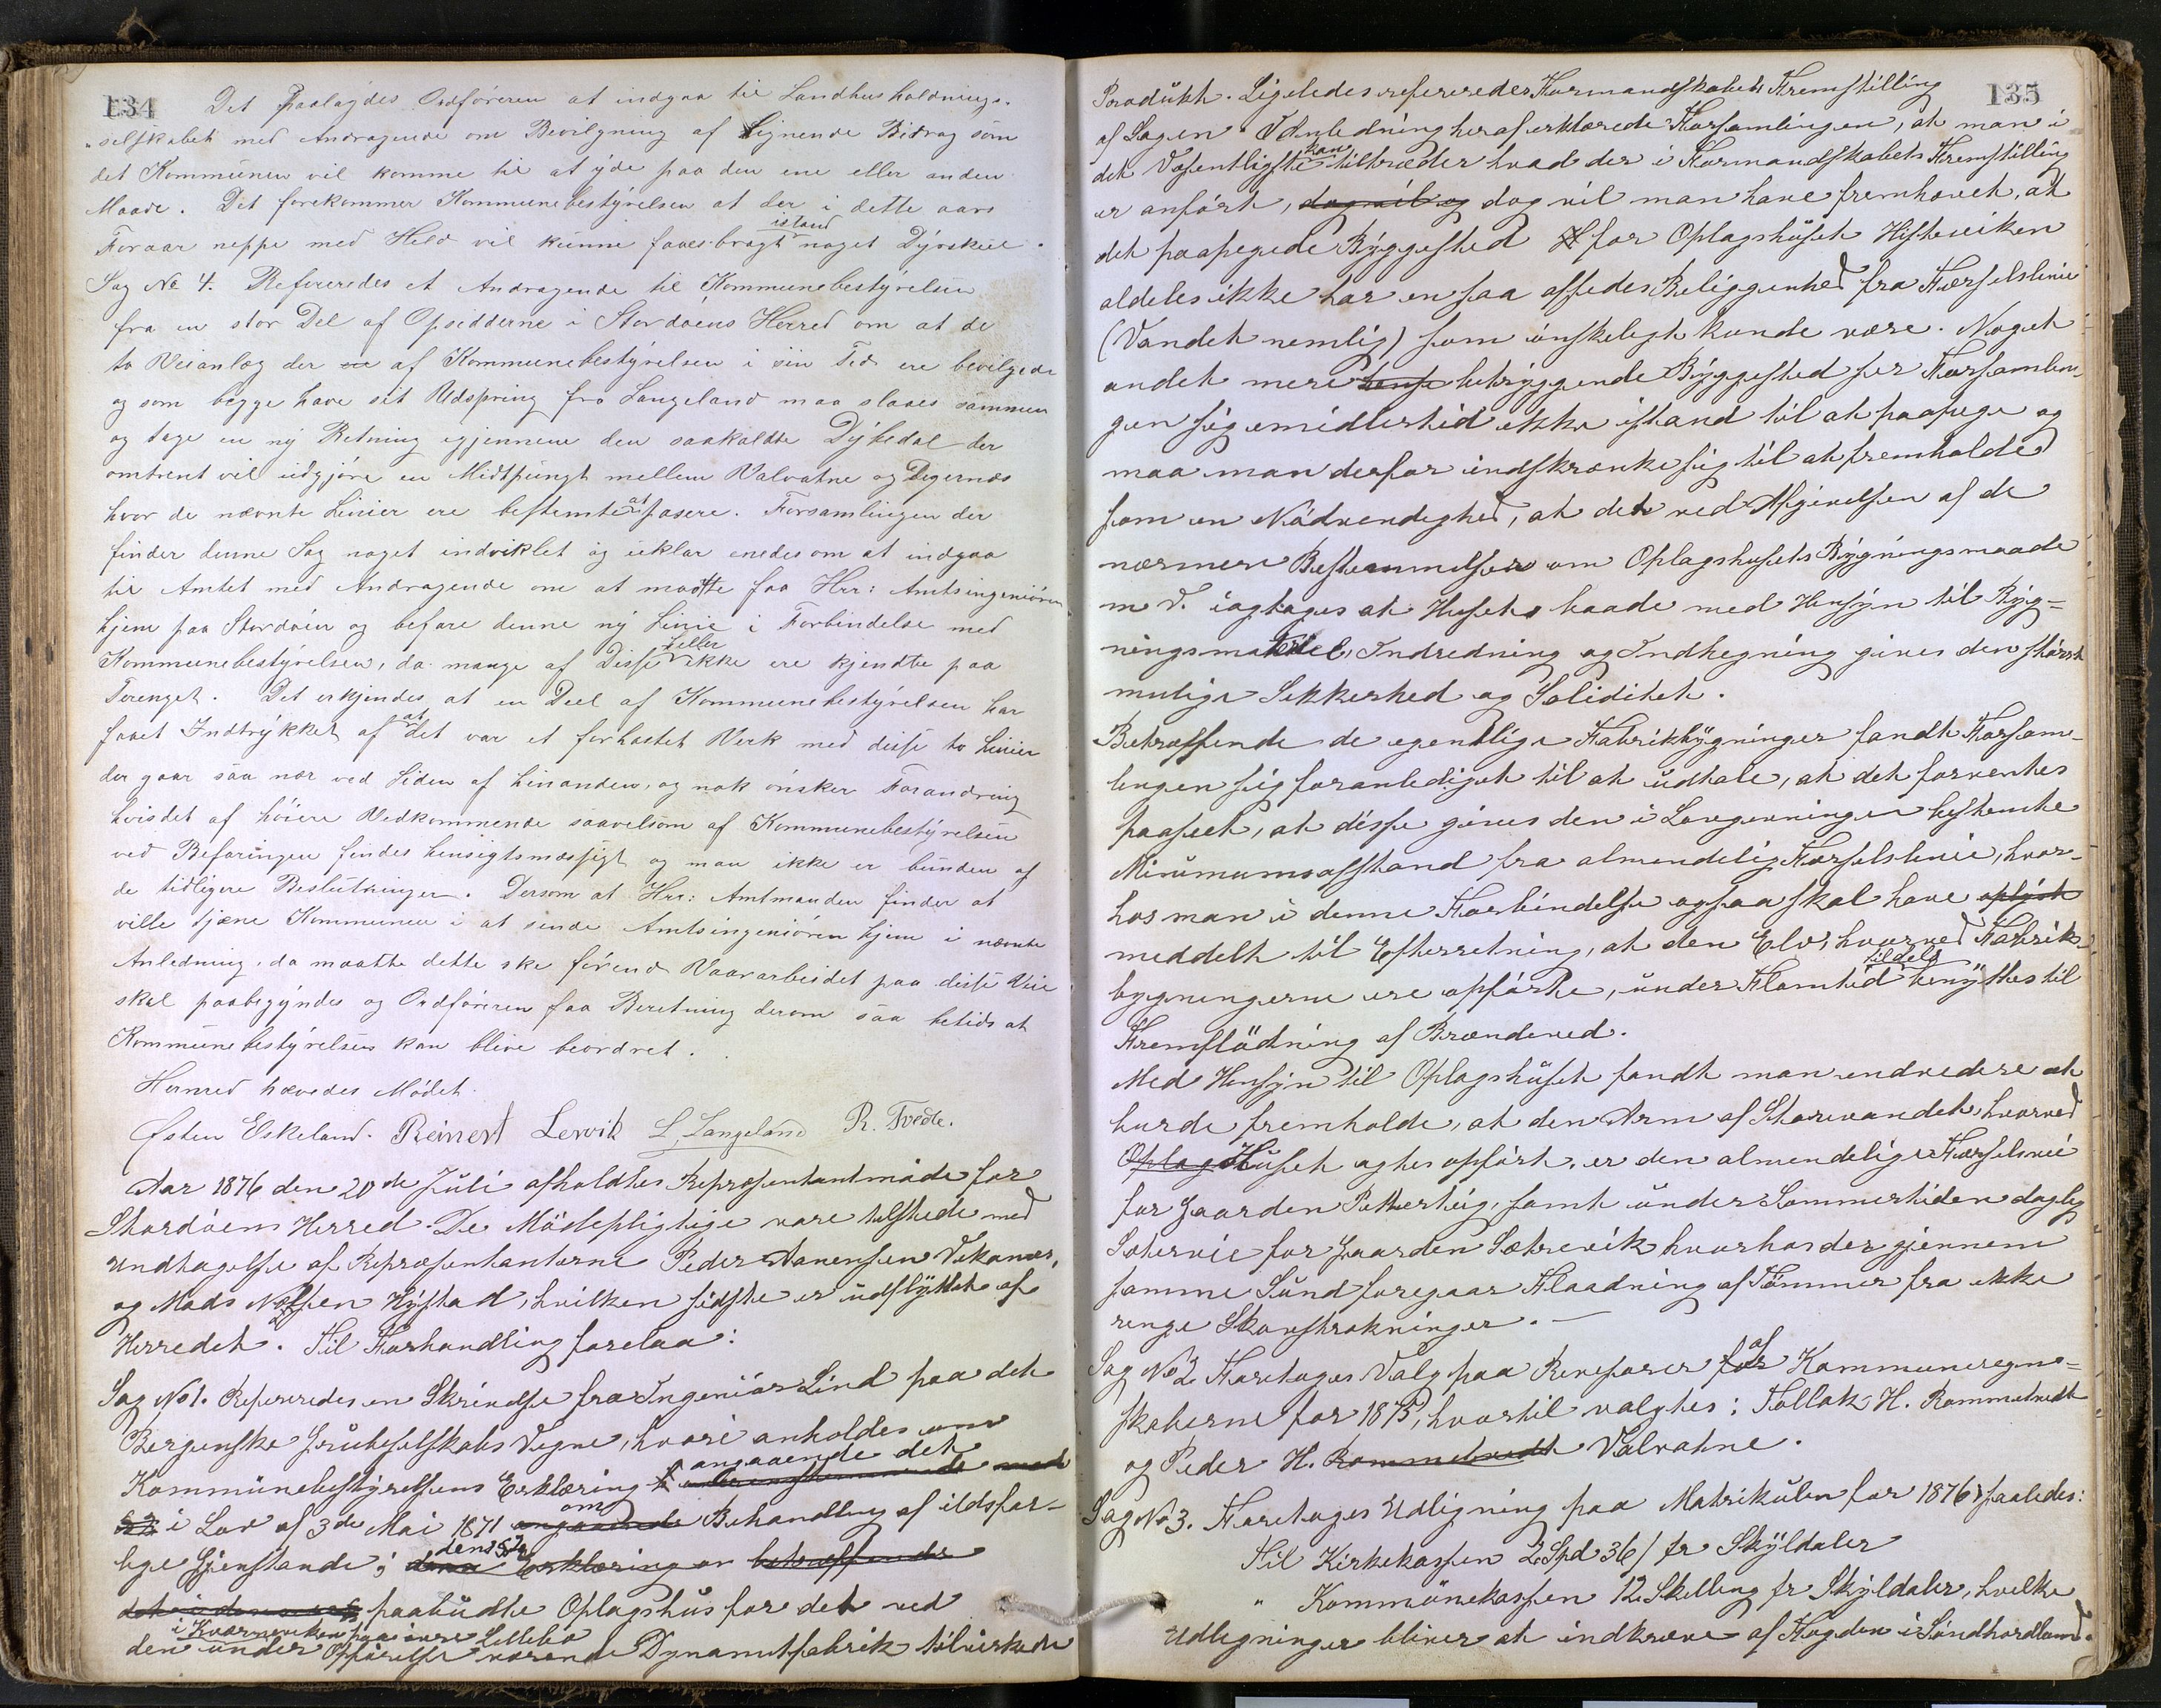 134
Det paalagdes Ordföreren at indgaa til Landhusholdnings-
selskabet med Andragende om Bevilgning af Lignende Bidrag som
det Kommunen vil komme til at yde paa den ene eller anden
Maade. Det forekommer Kommunebestyrelsen at der i dette aars
Foraar neppe med Held vil kunne faaes bragt istand noget Dyrskue.
Sag No 4. Refereredes et Andragende til Kommunebestyrelsen
fra en stor Del af Opsidderne i Stordöens Herred om at de
to Veianlæg der af Kommunebestyrelsen i sin Tid ere bevilgede
og som begge have sit Udspring fra Langeland maa slaaes sammen
og tage en ny Retning igjennem den saakaldte Dybedal der
omtrent vil udgjöre en Midtpungt mellem Valvatne og Digernæs
hvor de nævnte Linier ere bestemte at passere. Forsamlingen der
finder denne Sag noget indviklet og uklar enedes om at indgaa
til Amtet med Andragende om at maatte faa Hrr: Amtsingeniören
hjem paa Stordöen og befare denne ny Linie i Forbindelse med
Kommunebestyrelsen, da mange af Disse heller ikke ere kjendte paa
Terenget. Det erkjendes at en Deel af Kommunebestyrelsen har
faaet Indtrykket af at det var et forhastet Verk med disse to Linier
der gaar saa nær ved Siden af hinanden, og nok önsker Forandring
hvis det af höiere Vedkommende saavelsom af Kommunebestyrelsen
ved Befaringen findes hensigtsmæssigt og man ikke er bunden af
de tidligere Beslutninger. Dersom at Hrr: Amtmanden finder at
ville tjene Kommunen i at sende Amtsingeniören hjem i nævnte
Anledning, da maatte dette ske förend Vaararbeidet paa disse Veie
skal paabegyndes og Ordföreren faa Beretning derom saa betids at
Kommunebestyrelsen kan blive beordret.
Hermed hævedes Mödet.
Østen Eskeland. Reinert Lervik L. Langeland R. Tvedte.
Aar 1876 den 20de Juli afholdtes Repræsentantmöde for
Stordöens Herred. De Mödepligtige vare tilstede med
Undtagelse af Repræsentanterne Peder Aanensen Vikanæs,
og Mads Nilssen Hystad, hvilken sidste er udflyttet af
Herredet. Til Forhandling forelaa:
Sag No 1. Refereredes en Skrivelse fra Ingeniör Lind paa det
Bergenske Grubeselskabs Vegne, hvori anholdes om
Kommunebestyrelsens Erklæring angaaende det
i Lov af 3de Mai 1871 angaaende om Behandling af ildsfar-
lige Gjenstande; dens § 2 Erklæring er betræffende
paabudte Oplagshus for det ved
den i Kværneviken paa övre Lillebö under Opförelse værende Dynamitfabrik tilvirkede
135
Produkt. Ligeledes refereredes Formandskabets Fremstilling
af Sagen. I Anledning heraf erklærede Forsamlingen, at man i
det Væsentligste kan tiltræder hvad der i Formandskabets Fremstilling
er anfört, dog vil og dog vil man have fremhævet, at
det paapegede Byggested for Oplagshuset Histeviken
aldeles ikke har en saa afsides Beliggenhed fra Færselslinie
(Vandet nemlig) som önskeligt kunde være. Noget
andet mere betryggende Byggested ser Forsamlin-
gen sig emidlertid ikke istand til at paapege og
maa man derfor indskrænke sig til at fremholde
som en Nödvendighed, at det ved Afgivelsen af de
nærmere Bestemmelser om Oplagshusets Bygningsmaade
m. V. iagtages at Huset baade med Hensyn til Byg-
ningsmateriel, Indredning og Indhegning gives den störst
mulige Sikkerhed og Soliditet.
Betræffende de egentlige Fabrikbygninger fandt Forsam-
lingen sig foranlediget til at udtale, at det forventes
paaseet, at disse gives den i Lovgivningen bestemte
Minimumsafstand fra almendelig Færselslinie, hvor-
hos man i denne Forbindelse ogsaa skal have oplyst
meddelt til Efterretning, at den Elv, hvorved Fabrik-
bygningerne ere opförte, under Flomtid tildels benyttes til
Fremflödning af Brændeved.
Med Hensyn til Oplagshuset fandt man endvidere at
burde fremholde, at den Arm af Storevandet, hvorved
Oplagshuset agtes opfört, er den almendelige Færselsvei
for Gaarden Petterteig, samt under Sommertiden daglig
Sætervei for Gaarden Sætrevik hvorhos der gjennem
samme Sund foregaar Flaadning af Tömmer fra ikke
ringe Skovstrækninger.
Sag No 2. Foretages Valg paa Revisorer for af Kommuneregn-
skaberne for 1875, hvortil valgtes: Tollak H. Rommetvedt
og Peder H. Rommetvedt Valvatne.
Sag No 3. Foretages Udligning paa Matrikulen for 1876 saaledes:
Til Kirkekassen 2 Spd 36 / pr Skyldaler
" Kommünekassen 12 Skilling pr Skyldaler, hvilke
Udligninger bliver at indkræve af Fogden i Söndhordland.